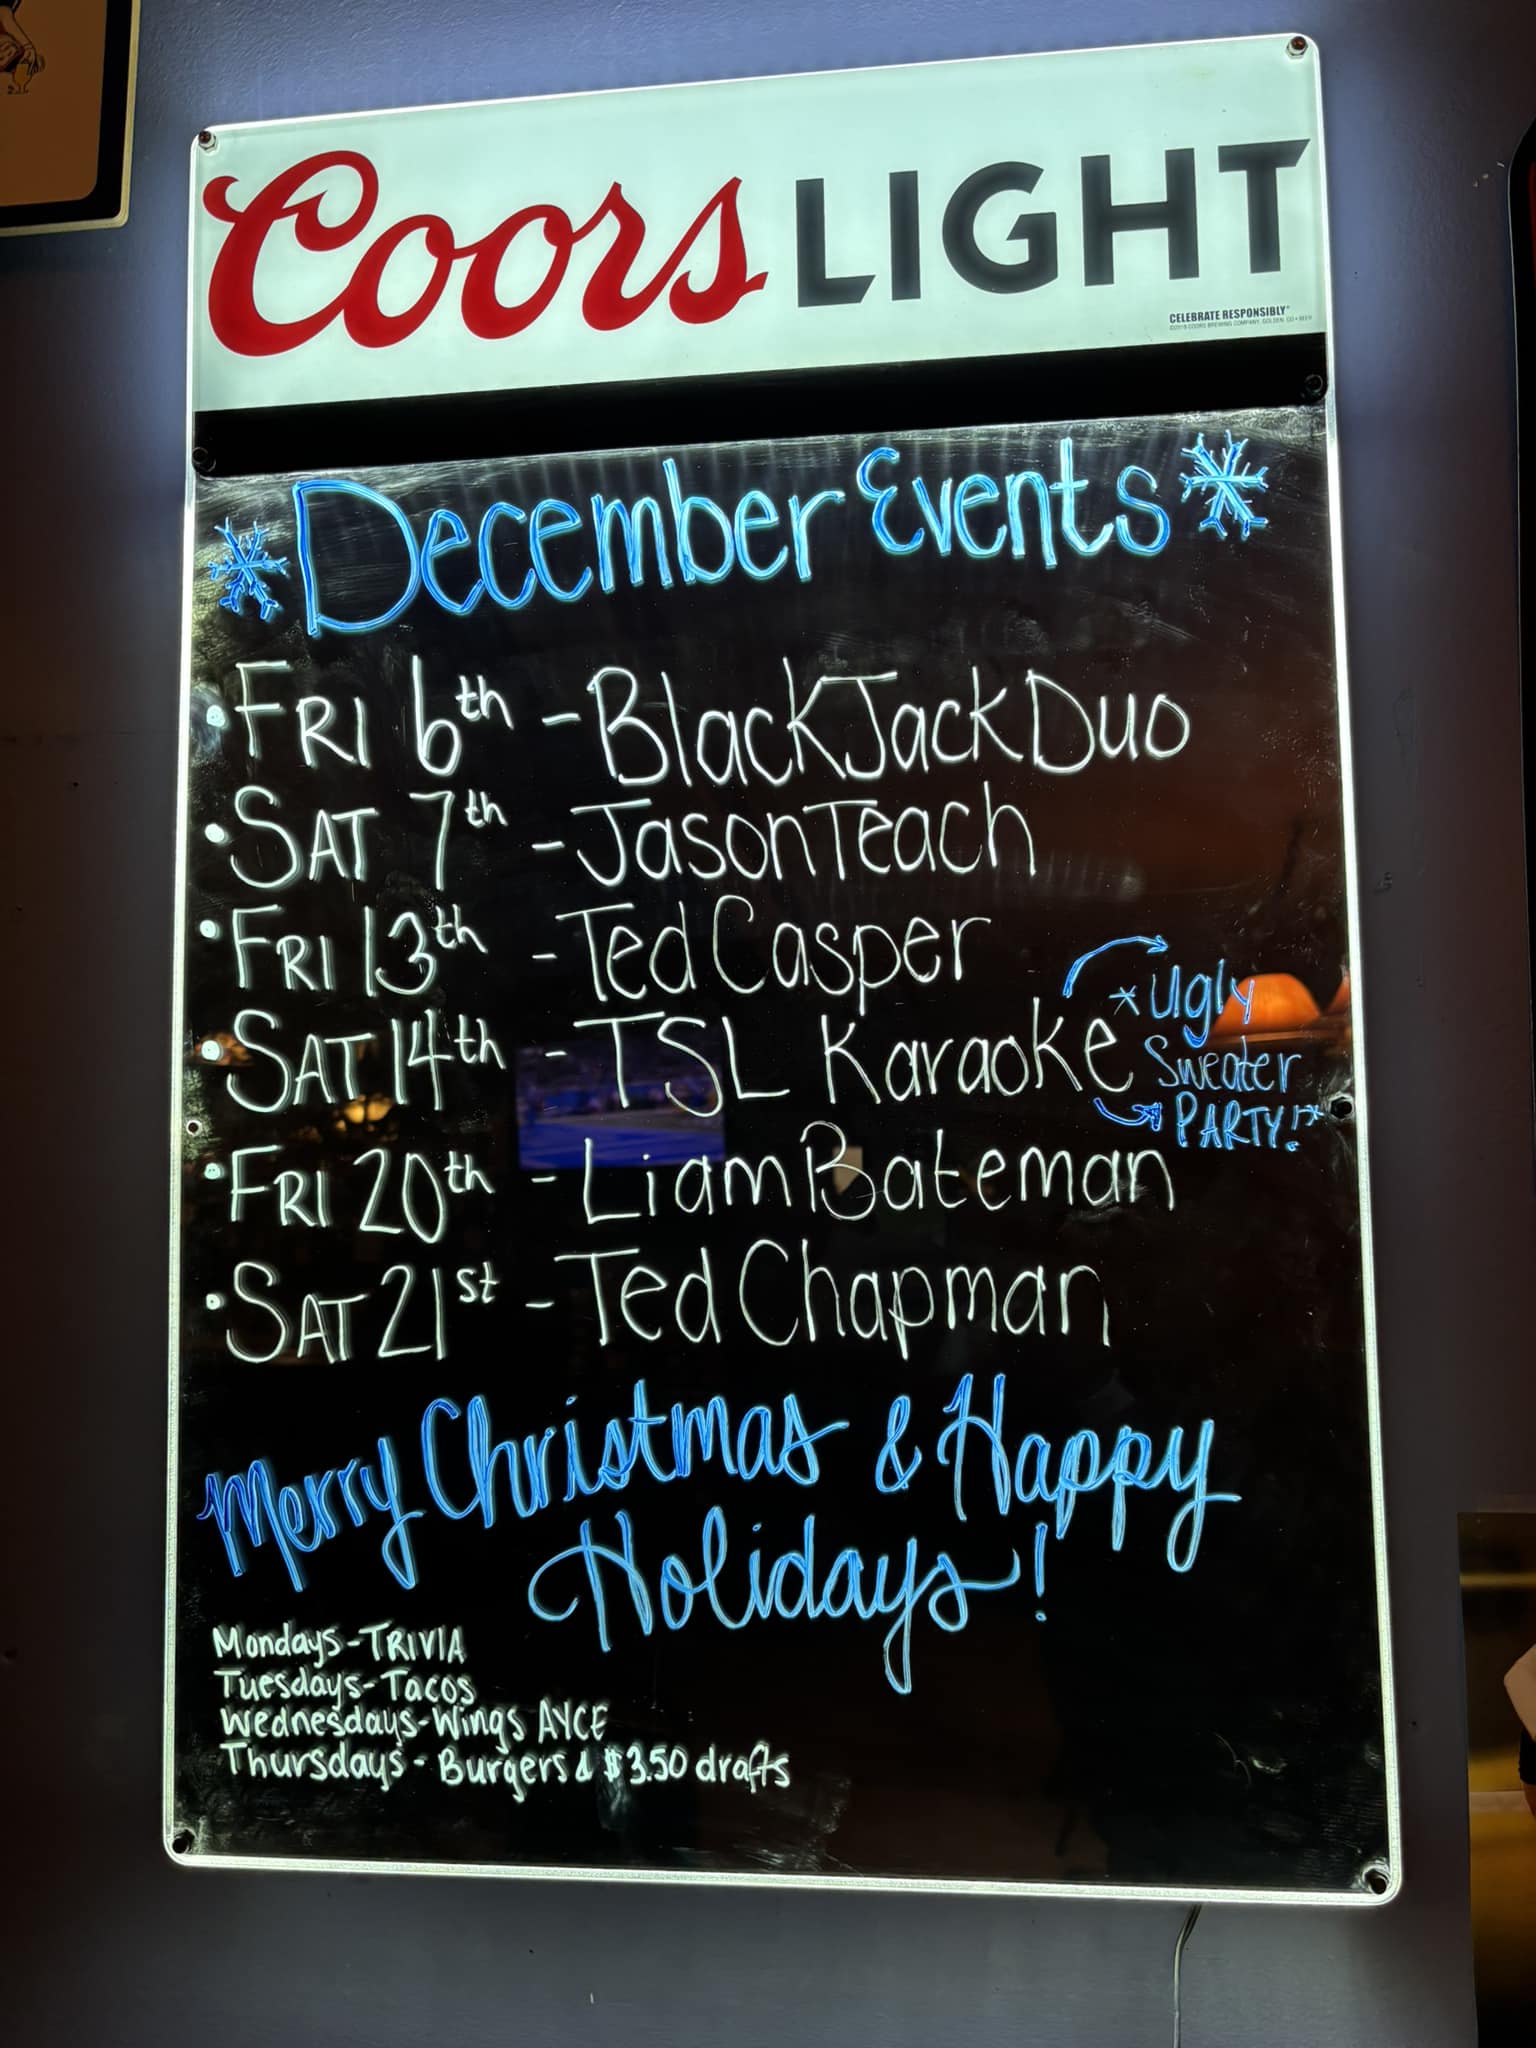 Coors LIGHT
CELEBRATE RESPONSIBLY®
©2019 COORS BREWING COMPANY, GOLDEN, CO • BEER
December Events
• FRI 6th - BlackJack Duo
• SAT 7th - Jason Teach
• FRI 13th - Ted Casper
• SAT 14th - TSL Karaoke
*Ugly
Sweater
PARTY!*
• FRI 20th - Liam Bateman
• SAT 21st - Ted Chapman
Merry Christmas & Happy
Holidays!
Mondays - TRIVIA
Tuesdays - Tacos
Wednesdays - Wings AYCE
Thursdays - Burgers & $3.50 drafts